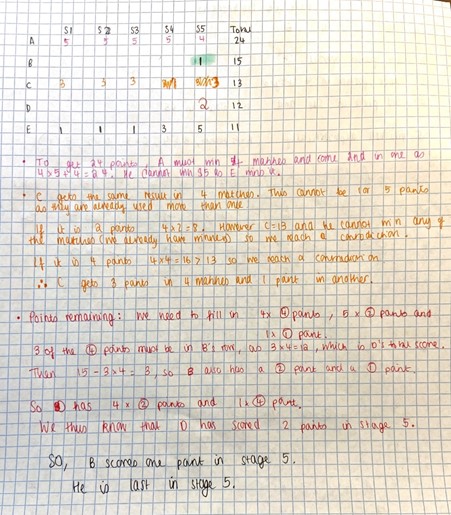 S1 S2 S3 S4 S5 Total
A 5 5 5 5 4 24
B 1 15
C 3 3 3 13
D 2 12
E 1 1 1 3 5 11
• To get 24 points, A must win 4 matches and come 2nd in one as
4×5+4=24. He cannot win S5 as E wins it.
• C gets the same result in 4 matches. This cannot be for 5 points
as they are already used more than one
If it is 2 points 4×2=8. However C=13 and he cannot win any of
the matches (we already have winners) so we reach a contradiction.
If it is 4 points 4×4=16>13 so we reach a contradiction
∴ C gets 3 points in 4 matches and 1 point in another.
• Points remaining: We need to fill in 4× ④ points, 5 × ② points and
1× ① point.
3 of the ④ points must be in B's row, as 3×4=12, which is D's total score.
Then 15-3×4=3, so B also has a ② point and a ① point.
So D has 4 × ② points and 1× ④ point.
We thus know that D has scored 2 points in stage 5.
SO, B scores one point in stage 5.
He is last in stage 5.